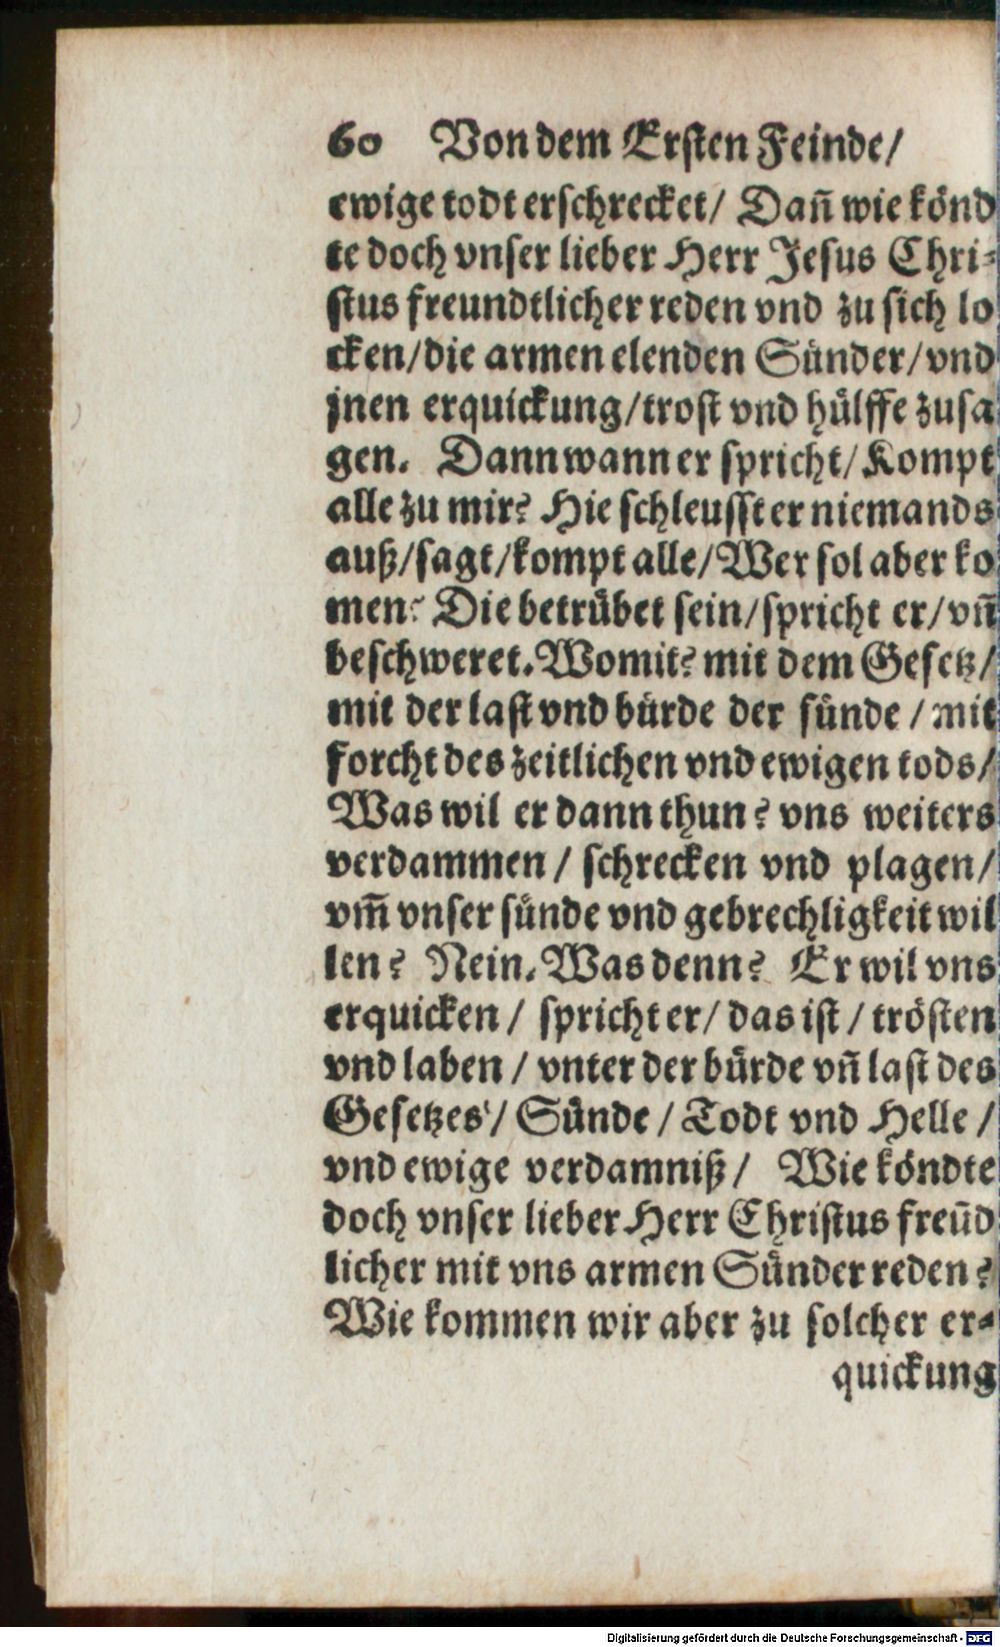 60 Von dem Ersten Feinde/
ewige todt erschrecket/ Dañ wie könd
te doch vnser lieber Herr Jesus Chri⸗
stus freundtlicher reden vnd zu sich lo
cken/die armen elenden Sünder/vnd
jnen erquickung/trost vnd hülffe zusa
gen. Dann wann er spricht/ Kompt
alle zu mir? Hie schleusst er niemands
auß/sagt/kompt alle/Wer sol aber ko
men? Die betrübet sein/spricht er/vñ
beschweret. Womit? mit dem Gesetz/
mit der last vnd bürde der sünde / mit
forcht des zeitlichen vnd ewigen tods/
Was wil er dann thun? vns weiters
verdammen / schrecken vnd plagen/
vm̃ vnser sünde vnd gebrechligkeit wil
len? Nein. Was denn? Er wil vns
erquicken / spricht er/ das ist / trösten
vnd laben / vnter der bürde vñ last des
Gesetzes / Sünde / Todt vnd Helle /
vnd ewige verdamniß/ Wie köndte
doch vnser lieber Herr Christus freũd
licher mit vns armen Sünder reden?
Wie kommen wir aber zu solcher er⸗
quickung
Digitalisierung gefördert durch die Deutsche Forschungsgemeinschaft - DFG